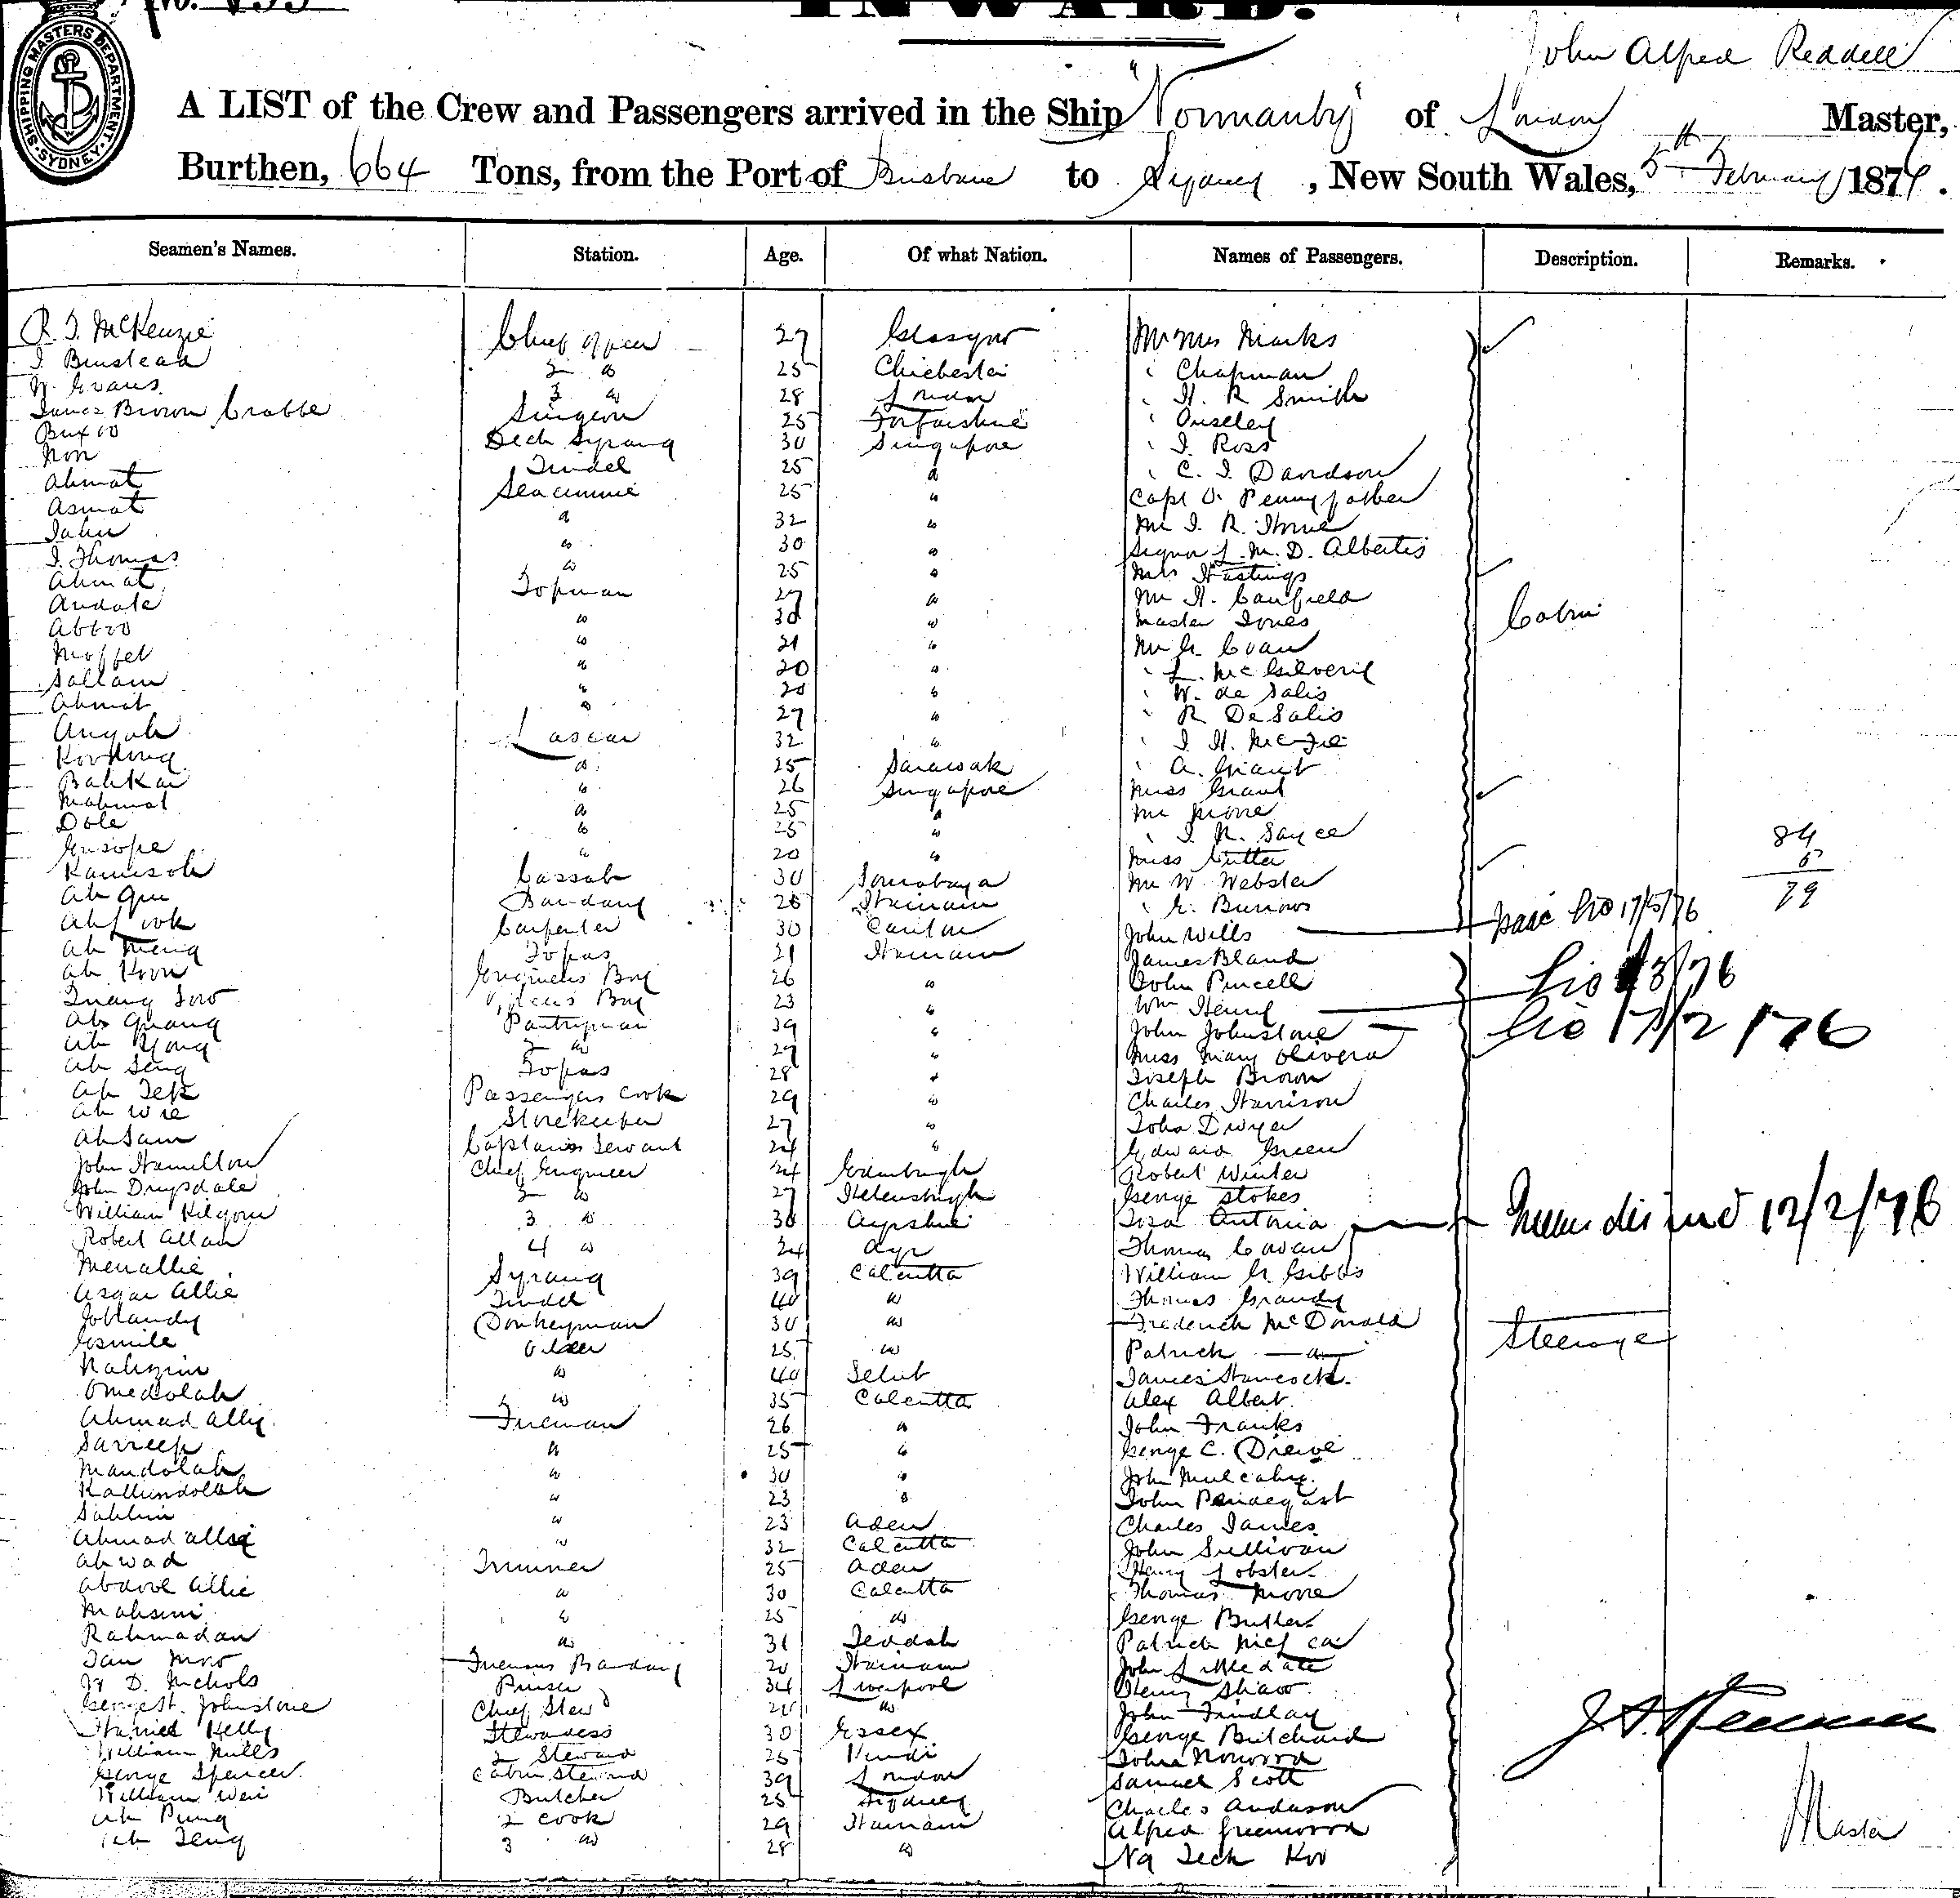 INWARD.
SHIPPING MASTERS DEPARTMENT SYDNEY
John Alfred Reddell
A LIST of the Crew and Passengers arrived in the Ship "Normanby" of London Master,
Burthen, 664 Tons, from the Port of Brisbane to Sydney, New South Wales, 5th February 1876.
Seamen's Names. Station. Age. Of what Nation. Names of Passengers. Description. Remarks.
R. J. McKenzie Chief Officer 27 Glasgow Mr Mrs Marks
J. Binstead 2 " 25 Chichester " Chapman
W. Evans 3 " 28 London " H. R Smith
James Brown Crabbe Surgeon 25 Forfarshire " Ouseley
Buxoo Deck Syrang 30 Singapore " J. Ross
Non Tindel 25 " " C. J. Davidson
Ahmat Seacunnie 25 " Capt C. Pennyfather
Asmat " 32 " Mr J. R.
Jahn " 30 " Signor L. M. D. Albertis
J. Thomas " 25 " Mrs Hastings
Ahmat Topman 27 " Mr H. Canfield
Andale " 30 " Master Jones Cabin
Abboo " 21 " Mr G. Cran
Moffel " 20 " " L. McGilveril
Sallam " 20 " " W. de Salis
Ahmat " 27 " " R. De Salis
Anyoh Lascar 32 " " J. H. McFie
" 25 Sarawak " A. Grant
Bahkar " 26 Singapore Miss Grant
Mahmat " 25 " Mr Moore
Dole " 25 " " J. R. Sayce
Gusope " 20 " Miss Cutter
Kamisoh Cassab 30 Sourabaya Mr W. Webster
Ah Que Bandary 26 Hainam " G. Burrows
84
5
79
Ah Look Carpenter 30 Canton John Wills
Ah Meng Topas 21 Hainam James Bland
Ah Koon Engineers Boy 26 " John Purcell
Officers Boy 23 " Wm Henry
Ah Quang Pantryman 39 " John Johnstone
Ah Yong 2 " 27 " Miss Mary Olivera
Ah Seng Topas 28 " Joseph Brown
Ah Tek Passengers Cook 29 " Charles Harrison
Ah Wie Storekeeper 27 " John Dwyer
Ah Sam Captains Servant 24 " Edward Green
John Hamilton Chief Engineer 34 Edinburgh Robert Winter
John Drysdale 2 " 27 Helensburgh George Stokes
William Kilgour 3 " 30 Ayrshire Antonia 12/2/76
Robert Allan 4 " 24 Ayr Thomas Cowan
Menallie Syrang 39 Calcutta William G. Gibbs
Asgar Allie Tindel 40 " Thomas Grandy
Jollandy Donkeyman 30 " Frederick McDonald
Esmile Oilser 25 " Patrick " Steerage
Rahgim " 40 Selut James Hancock
Omedolah " 35 Calcutta Alex Albert
Ahmad Ally Fireman 26 " John Franks
Sarreep " 25 " George C. Drewe
Mandolah " 30 " John Mulcahy
Kallundollah " 23 " John Pendegast
Sahlim " 23 Aden Charles James
Ahmad Allie " 32 Calcutta John Sullivan
Ahwad Trimmer 25 Aden Henry Lobster
Abdool Allie " 30 Calcutta Thomas Moore
Mahsini " 25 " George Butler
Rahmadan " 31 Jeddah Patrick
Firemans Bandary 20 Hainam John Littledale
D. Nichols Purser 34 Liverpool Henry Shaw
George H. Johnstone Chief Stewd " John Findlay
Harriet Kelly Stewardess 30 Essex George Butchard
William Mills 2 Steward 25 John Norwood
George Spencer Cabin Steward 39 London Samuel Scott
William Weir Butcher 25 Sydney Charles Anderson
Ah Pung 2 Cook 29 Hainam Alfred Greenwood
Ah Teng 3 " 28 " Ng Teck Koo
Master